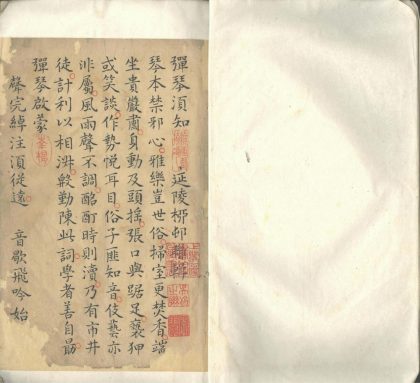 彈琴須知　延陵梛邨
琴本禁邪心雅樂豈世俗掃室更焚香端
坐貴嚴肅身動及頭摇張口與踞足褻狎
或笑談作勢悅耳目俗子匪知音伎藝亦
非屬風雨聲不調酩酊時則瀆乃有市井
徒計利以相洪殷勤陳此詞學者善自勗
彈琴啟蒙
聲完綽注須從遠　音歇飛吟始